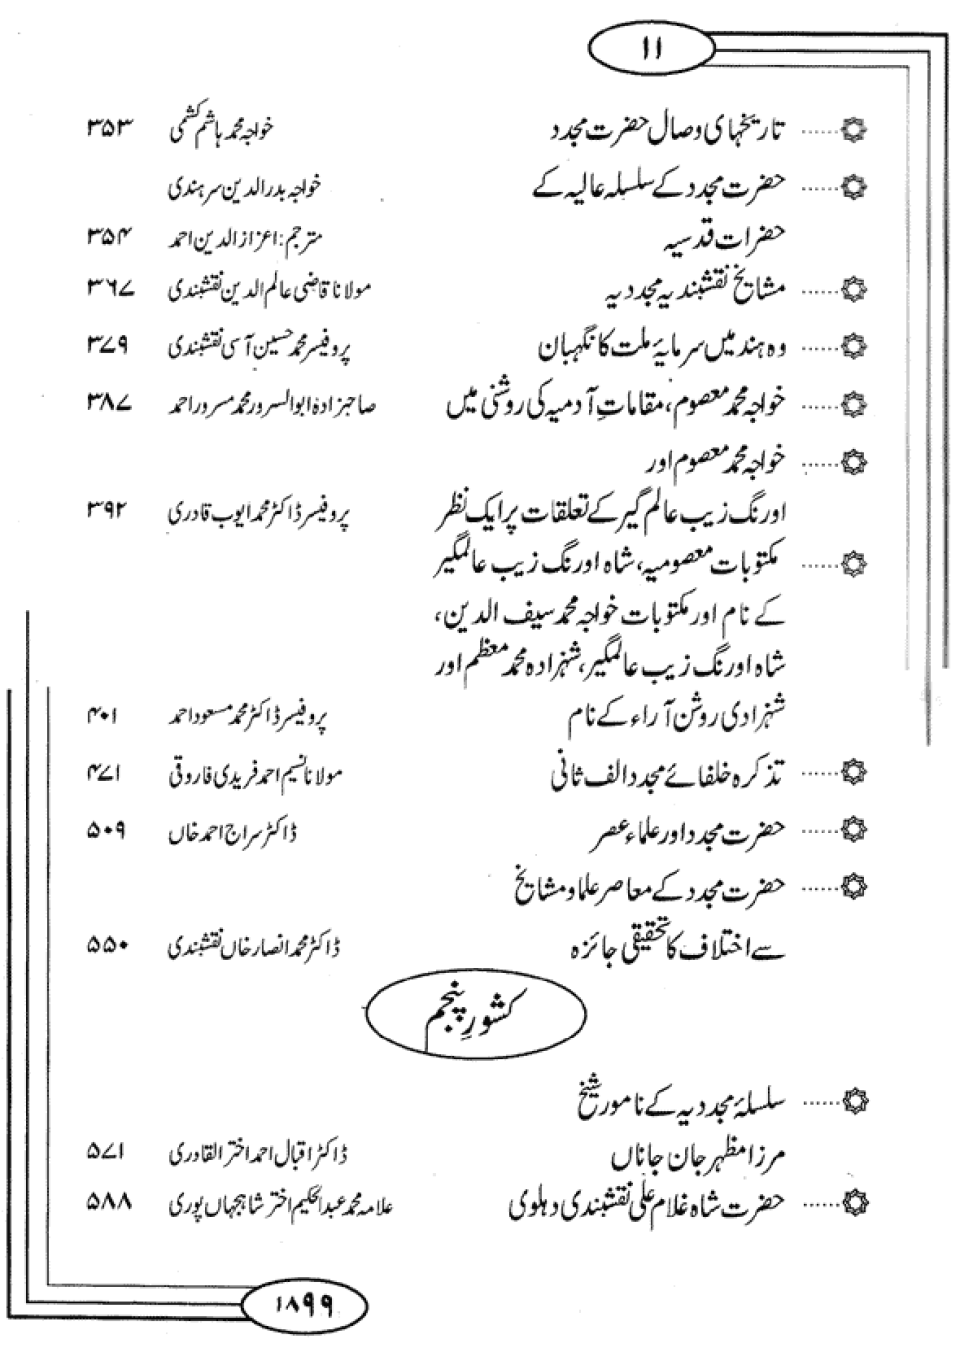 ۱۱
تاریخہای وصال حضرت مجدد خواجہ محمد ہاشم کشمی ۳۵۳
حضرت مجدد کے سلسلہ عالیہ کے خواجہ بدر الدین سرہندی
حضرات قدسیہ مترجم: اعزاز الدین احمد ۳۵۴
مشایخ نقشبندیہ مجددیہ مولانا قاضی عالم الدین نقشبندی ۳۶۷
وہ ہند میں سرمایۂ ملت کا نگہبان پروفیسر محمد حسین آسی نقشبندی ۳۷۹
خواجہ محمد معصوم، مقاماتِ آدمیہ کی روشنی میں صاحبزادہ ابوالسرور محمد مسرور احمد ۳۸۷
خواجہ محمد معصوم اور
اورنگ زیب عالم گیر کے تعلقات پر ایک نظر پروفیسر ڈاکٹر محمد ایوب قادری ۳۹۲
مکتوبات معصومیہ، شاہ اورنگ زیب عالمگیر
کے نام اور مکتوبات خواجہ محمد سیف الدین،
شاہ اورنگ زیب عالمگیر، شہزادہ محمد معظم اور
شہزادی روشن آراء کے نام پروفیسر ڈاکٹر محمد مسعود احمد ۴۰۱
تذکرہ خلفائے مجدد الف ثانی مولانا نسیم احمد فریدی فاروقی ۴۷۱
حضرت مجدد اور علماء عصر ڈاکٹر سراج احمد خاں ۵۰۹
حضرت مجدد کے معاصر علما و مشایخ
سے اختلاف کا تحقیقی جائزہ ڈاکٹر محمد انصار خاں نقشبندی ۵۵۰
کشورِ پنجم
سلسلۂ مجددیہ کے نامور شیخ
مرزا مظہر جان جاناں ڈاکٹر اقبال احمد اختر القادری ۵۷۱
حضرت شاہ غلام علی نقشبندی دہلوی علامہ محمد عبدالحکیم اختر شاہجہاں پوری ۵۸۸
۱۸۹۹